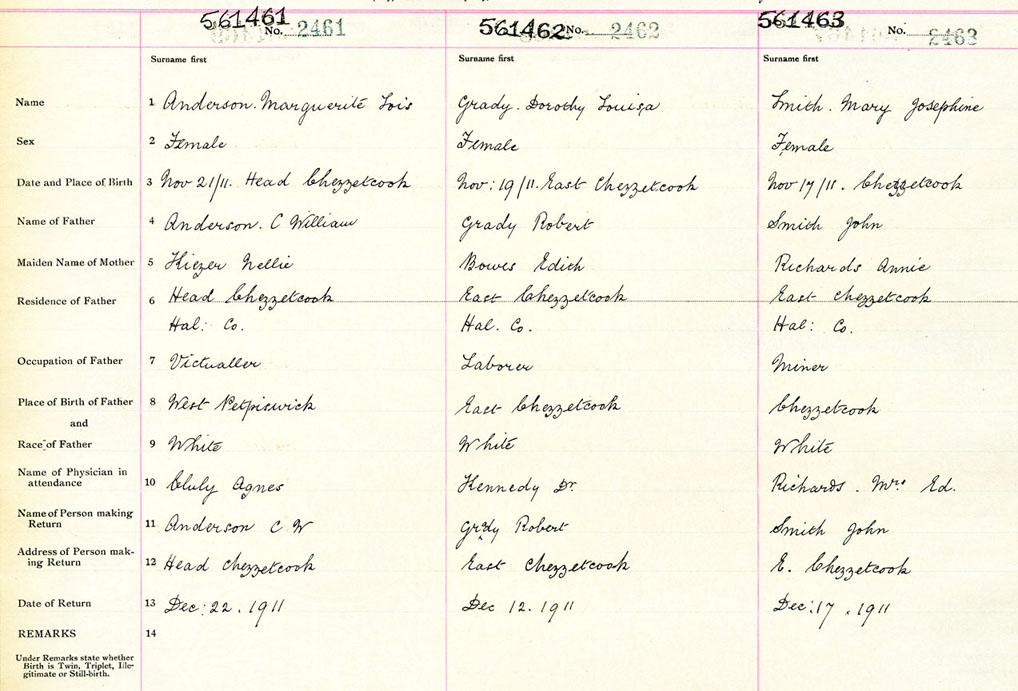 561461 No. 2461 561462 No. 2462 561463 No. 2463
Surname first Surname first Surname first
Name 1 Anderson. Marguerite Lois Grady. Dorothy Louisa Smith. Mary Josephine
Sex 2 Female Female Female
Date and Place of Birth 3 Nov 21/11. Head Chezzetcook Nov: 19/11. East Chezzetcook Nov 17/11. Chezzetcook
Name of Father 4 Anderson. C William Grady Robert Smith John
Maiden Name of Mother 5 Kiezer Nellie Bowes Edith Richards Annie
Residence of Father 6 Head Chezzetcook East Chezzetcook East Chezzetcook
Hal: Co. Hal. Co. Hal: Co.
Occupation of Father 7 Victualler Laborer Miner
Place of Birth of Father 8 West Petpiswick East Chezzetcook Chezzetcook
and
Race of Father 9 White White White
Name of Physician in
attendance 10 Cluly Agnes Kennedy Dr. Richards. Mrs Ed.
Name of Person making
Return 11 Anderson C W Grady Robert Smith John
Address of Person mak-
ing Return 12 Head Chezzetcook East Chezzetcook E. Chezzetcook
Date of Return 13 Dec: 22. 1911 Dec 12. 1911 Dec: 17. 1911
REMARKS 14
Under Remarks state whether
Birth is Twin, Triplet, Ille-
gitimate or Still-birth.